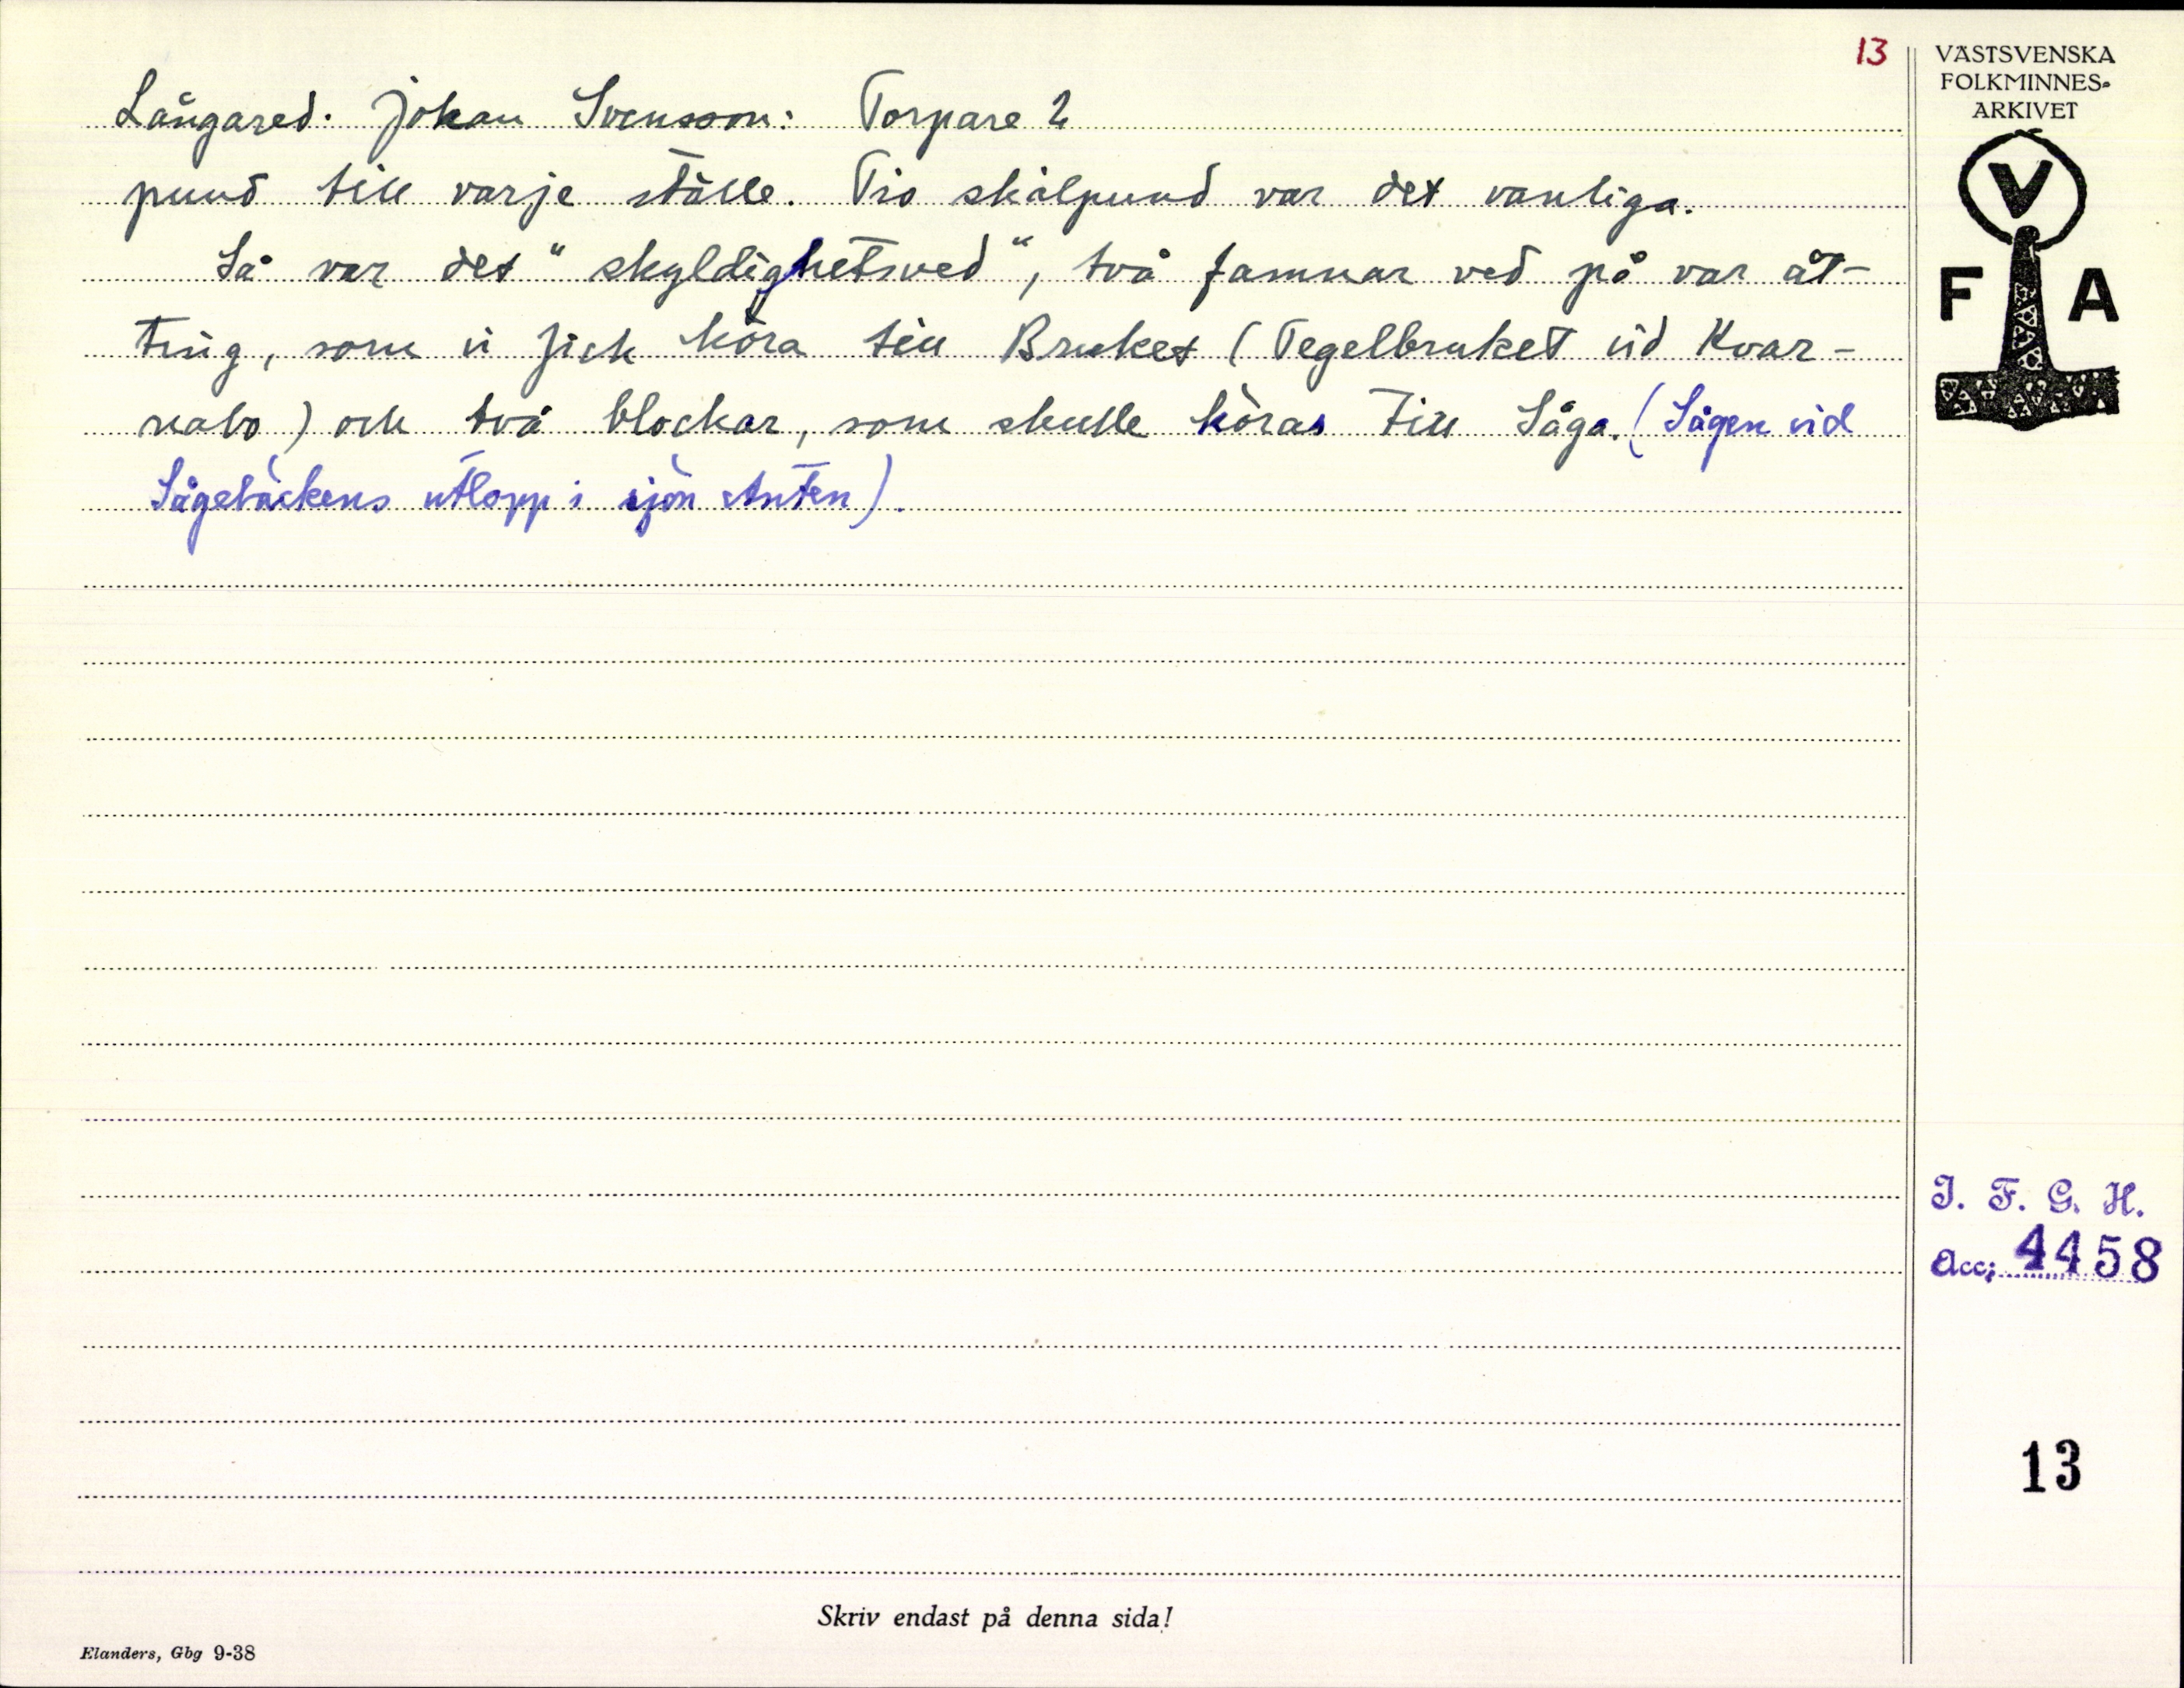 13
Långared. Johan Svensson: Torpare 2
pund till varje ställe. Tio skålpund var det vanliga.
Så var det "skyldighetsved", två famnar ved på var åt-
ting, som vi fick köra till Bruket (Tegelbruket vid Kvar-
nabo) och två blockar, som skulle köras till Såga. (Sågen vid
Sågebäckens utlopp i sjön Anten).
VÄSTSVENSKA
FOLKMINNES-
ARKIVET
V
F A
I. F. G. H.
Acc; 4458
13
Skriv endast på denna sida!
Elanders, Gbg 9-38